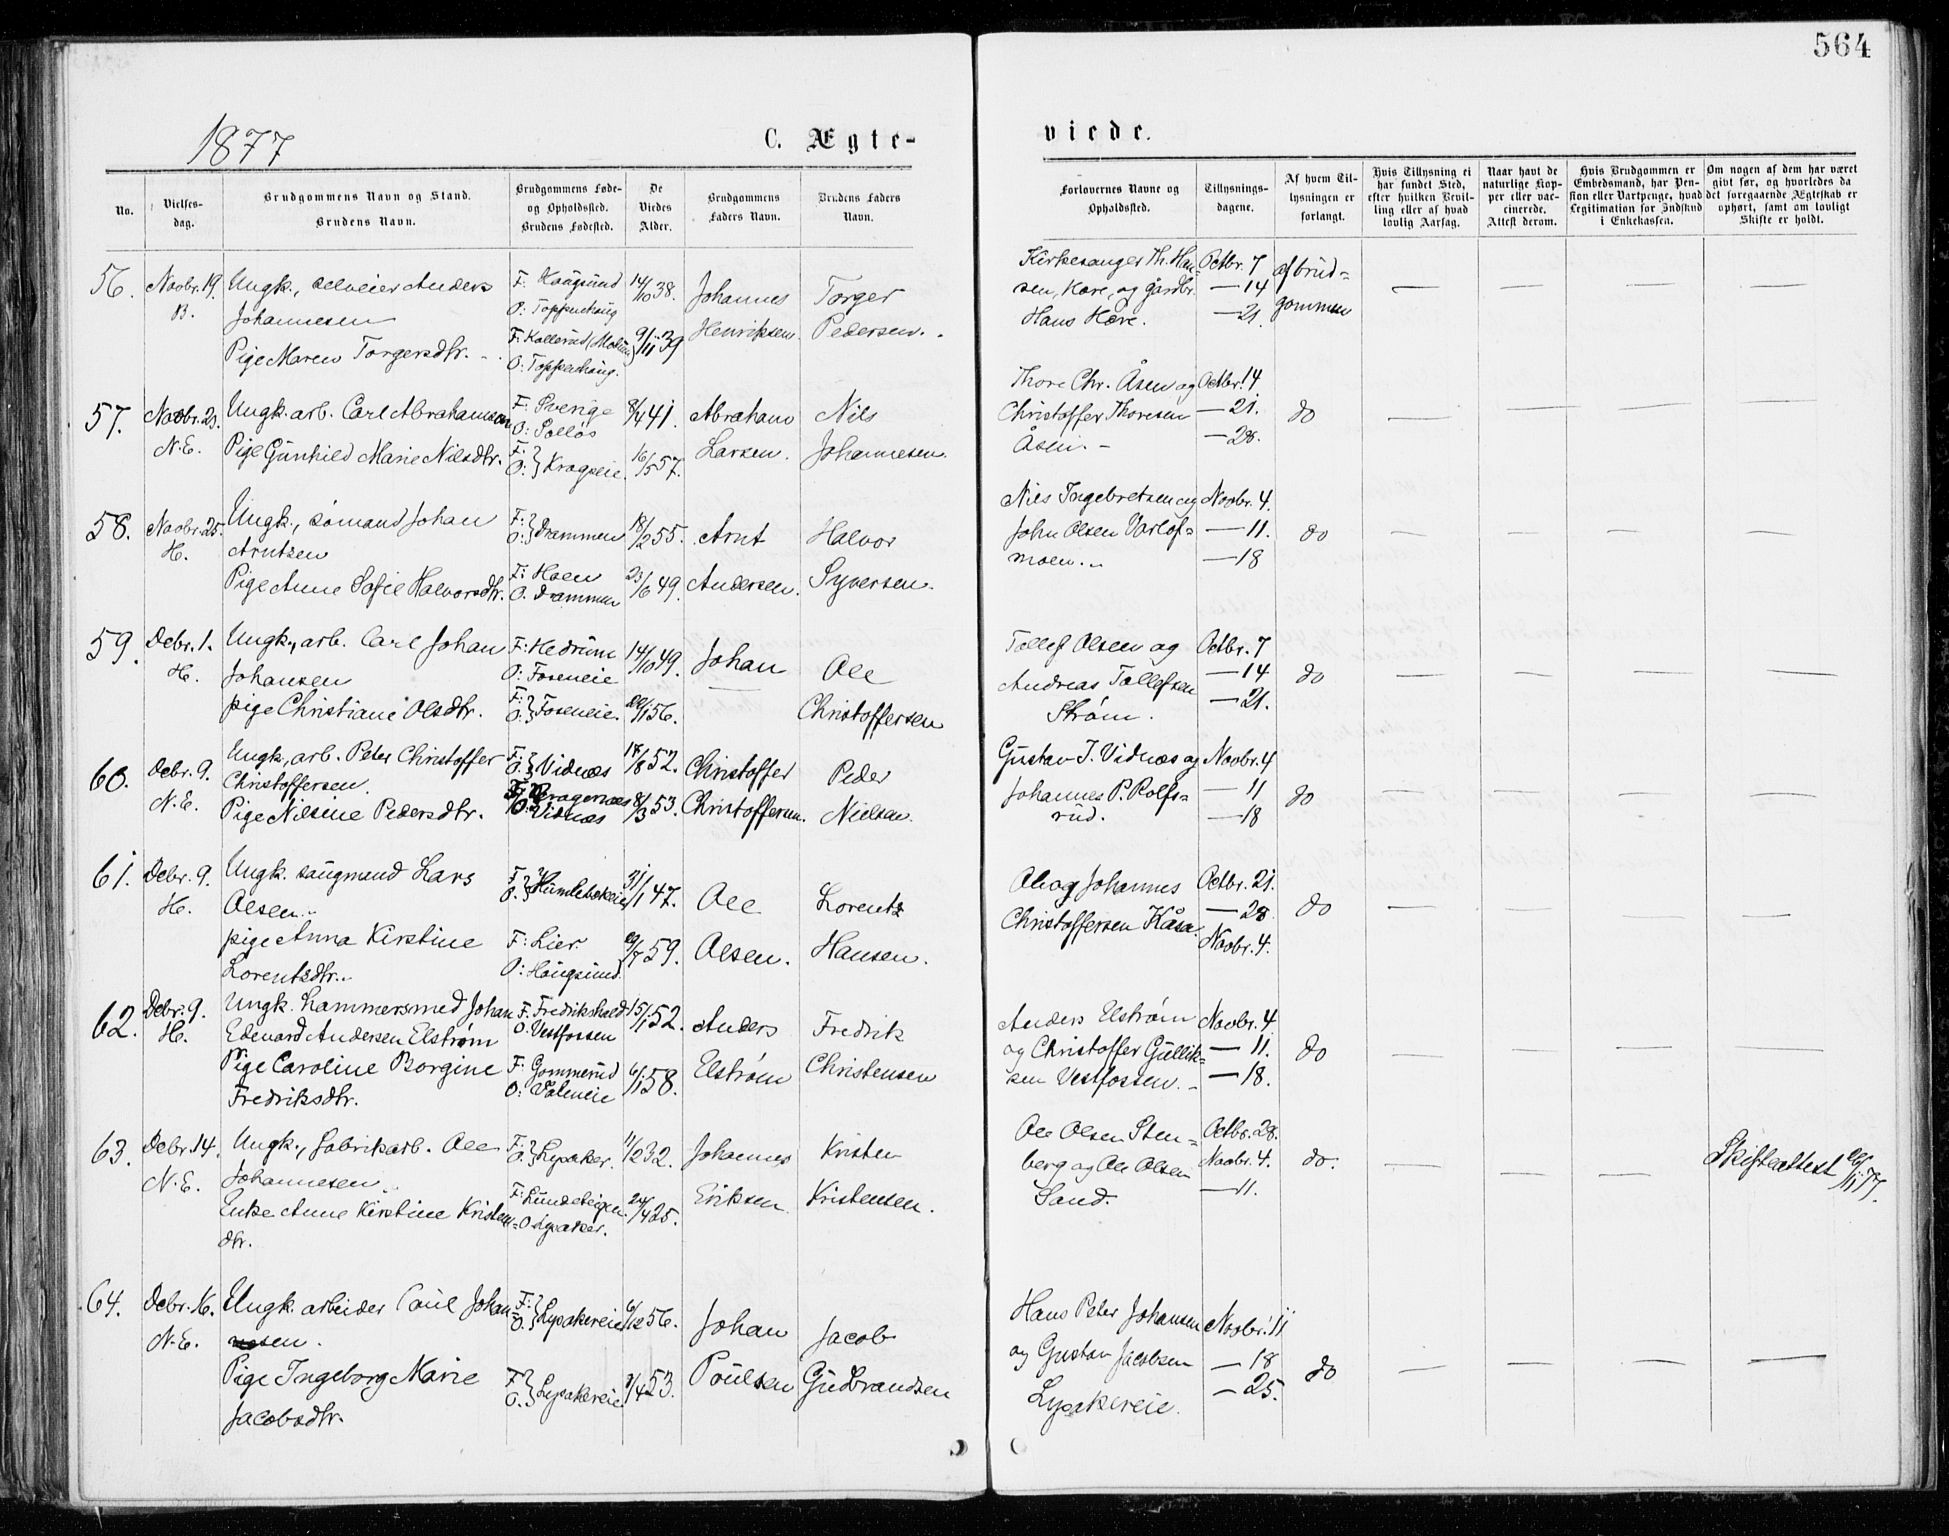 564
1877
C. Ægte-
viede.
No.
Vielses-
dag.
Brudgommens Navn og Stand.
Brudens Navn.
Brudgommens Føde-
og Opholdssted.
Brudens Fødested.
De
Viedes
Alder.
Brudgommens
Faders Navn.
Brudens Faders
Navn.
Forlovernes Navne og
Opholdssted.
Tillysnings-
dagene.
Af hvem Til-
lysningen er
forlangt.
Hvis Tillysning ei
har fundet Sted,
efter hvilken Bevil-
ling eller af hvad
lovlig Aarsag.
Naar havt de
naturlige Kop-
per eller vac-
cinerede.
Attest derom.
Hvis Brudgommen er
Embedsmand, har Pen-
sion eller Vartpenge, hvad
Legitimation for Indskud
i Enkekassen.
Om nogen af dem har været
givt før, og hvorledes da
det foregaaende Ægteskab er
ophørt, samt om lovligt
Skifte er holdt.
56.
Novbr. 19.
B.
Ungk., selveier Anders
Johannesen
Pige Maren Torgersdtr.
F. Hougsund
O: Topperhaug
F: Kollerud
O: Topperhaug.
14/10 38.
9/11 39
Johannes
Henriksen.
Torger
Pedersen.
Kirkesanger Th. Han-
sen, Hære, og gårdbr.
Hans Hære.
Octbr. 7
— 14
— 21.
af brud-
gommen
— — — — —
57.
Novbr. 23.
N.E.
Ungk. arb. Carl Abrahamsen
Pige Gunhild Marie Nilsdtr.
F: Sverige
O: Solløs
F: }
O: } Krogseie.
8/4 41.
16/5 57.
Abraham
Larsen.
Nils
Johannesen.
Thore Chr. Åsen og
Christoffer Thoresen
Åsen.
Octbr. 14
— 21.
— 28.
do
— — — — —
58.
Novbr. 25.
H.
Ungk., sømand Johan
Arntzen
Pige Anne Sofie Halvorsdtr.
F: }
O: } Drammen
F: Hoen
O. Drammen
18/2 55.
23/6 49.
Arnt
Andersen.
Halvor
Syversen.
Nils Ingebretsen og
John Olsen Varlof-
moen.
Novbr. 4.
— 11.
— 18
do
— — — — —
59.
Debr. 1.
H.
Ungk., arb. Carl Johan
Johansen
pige Christiane Olsdtr.
F: Hedrum
O: Foseneie
F: }
O: } Foseneie.
14/10 49.
20/1 56.
Johan
—
Ole
Christoffersen
Tollef Olsen og
Andreas Tollefsen
Strøm.
Octbr. 7
— 14
— 21.
do
— — — — —
60.
Debr. 9.
N.E.
Ungk., arb. Peter Christoffer
Christoffersen.
Pige Nilsine Pedersdtr.
F: }
O: } Vidnæs
F: Bragernæs
O: Vidnæs
18/8 52.
8/3 53.
Christoffer
Christoffersen.
Peder
Nielsen.
Gustav J. Vidnæs og
Johannes P. Rolfs-
rud.
Novbr. 4
— 11
— 18
do
— — — — —
61.
Debr. 9.
H.
Ungk. saugmand Lars
Olsen.
pige Anna Kirstine
Lorentsdtr.
F: }
O: } Humlebekeie
F: Lier.
O: Hougsund.
31/1 47.
29/7 59.
Ole
Olsen.
Lorentz
Hansen.
Ole og Johannes
Christoffersen Kåsa.
Octbr. 21.
— 28.
Novbr. 4.
do
— — — — —
62.
Debr. 9.
H.
Ungk. hammersmed Johan
Edevard Andersen Elstrøm
Pige Caroline Borgine
Fredriksdtr.
F. Fredrikshald
O. Vestfossen
F: Gommerud
O:
15/1 52.
6/1 58.
Anders
Elstrøm
Fredrik
Christensen
Anders Elstrøm
og Christoffer Gullik-
sen Vestfossen.
Novbr. 4
— 11.
— 18.
do
— — — — —
63.
Debr. 14.
N.E.
Ungk., fabrikarb. Ole
Johannesen.
Enke Anne Kirstine Kristens-
dtr.
F: }
O. } Lysaker.
F: Lundeteigen.
O Lysaker.
11/2 32.
24/4 25.
Johannes
Eriksen
Kristen
Kristensen.
Ole Olsen Sten-
berg og Ole Olsen
Sand.
Octbr. 28.
Novbr. 4.
— 11.
do.
— — — —
Skifteattest 26/11 77.
64.
Debr. 16.
N.E.
Ungk. arbeider Paul Johan-
sen.
Pige Ingeborg Marie
Jacobsdtr.
F: }
O: } Lysakereie
F: }
O. } Lysakereie.
6/12 56.
7/4 53.
Johan
Poulsen
Jacob
Gudbrandsen
Hans Peter Johansen
og Gustav Jacobsen
Lysakereie.
Novbr. 11
— 18
— 25.
do
— — — — —